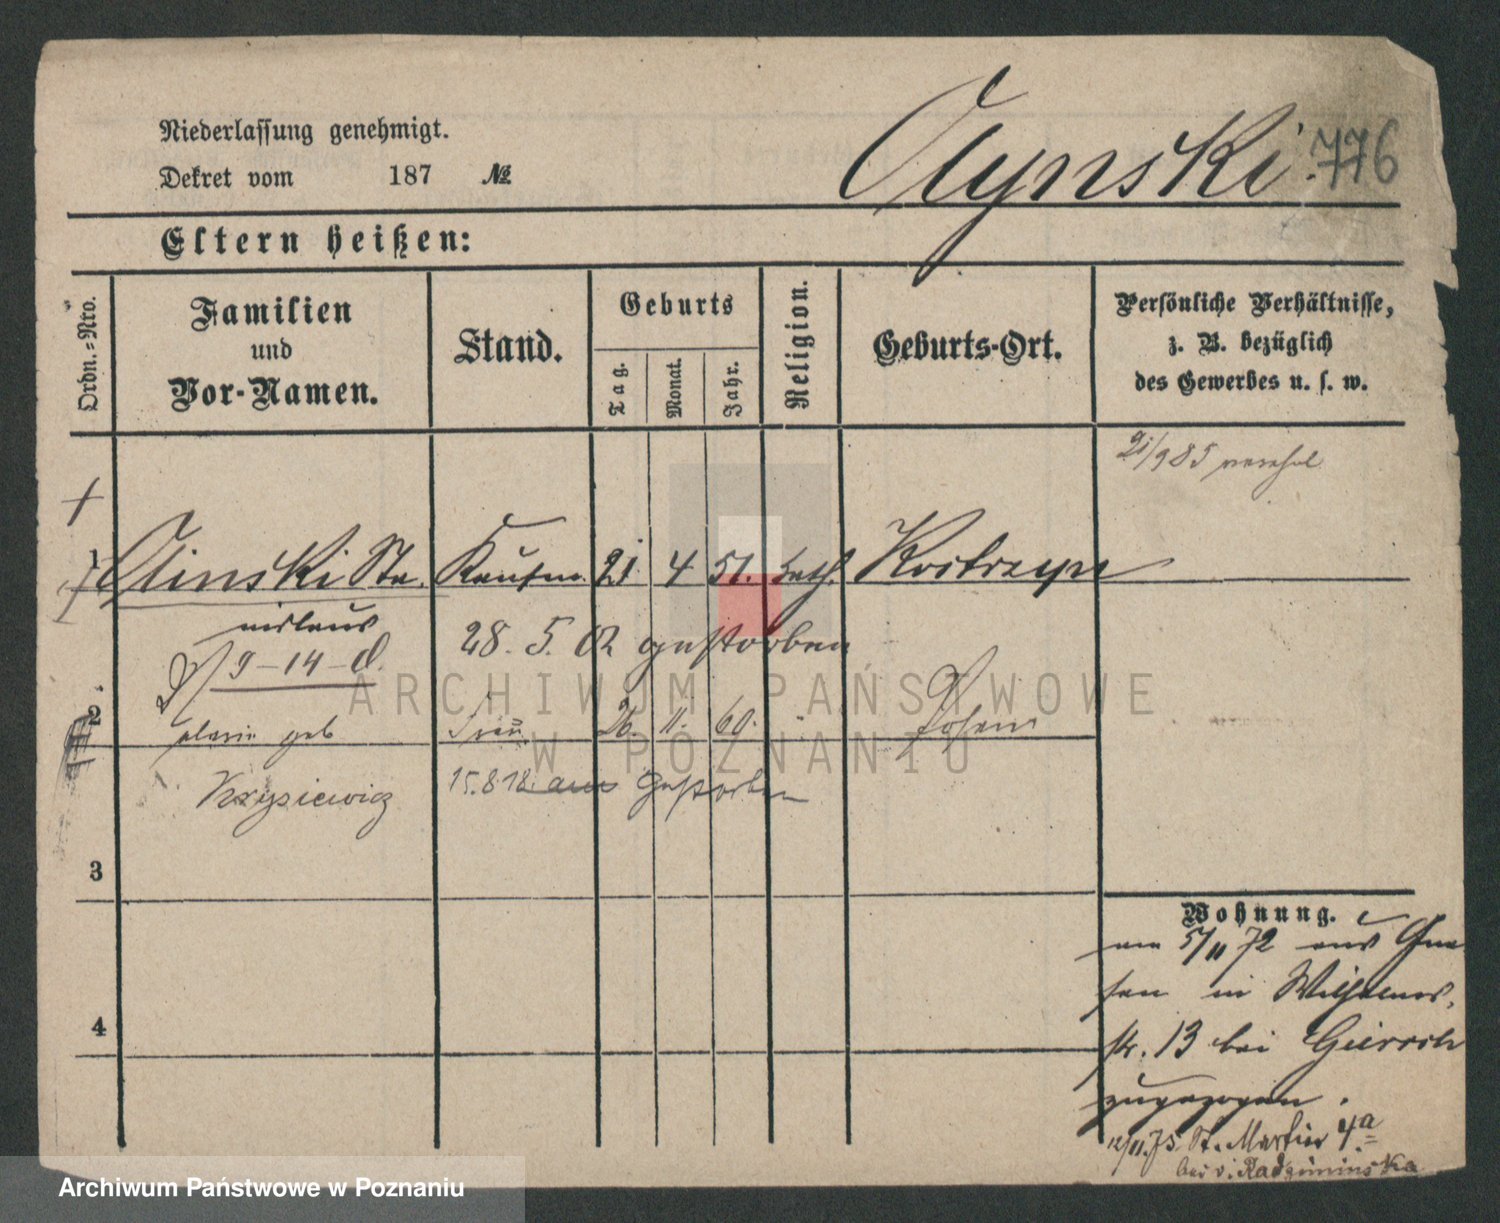 Niederlassung genehmigt.
Dekret vom 187 №
Olynski. 776
Eltern heißen:
Ordn.-Nro.
Familien
und
Vor-Namen.
Stand.
Geburts
Tag.
Monat.
Jahr.
Religion.
Geburts-Ort.
Persönliche Verhältnisse,
z. B. bezüglich
des Gewerbes u. s. w.
1 Olinski Sta- Kaufm. 21 4 51. kath. Kostrzyn
nislaus
28. 5. 02 gestorben
9-14-
2 geb Frau 26. 11. 60. Posen
Krysiewicz
15.8.18 gestorben
3
4
Wohnung.
am 5/11 72 aus Gne
sen in Wilhelms-
str. 13 bei
zugezogen.
12/11.75. St. Martin 4a
bei v. Radziminska
ARCHIWUM PAŃSTWOWE
W POZNANIU
Archiwum Państwowe w Poznaniu